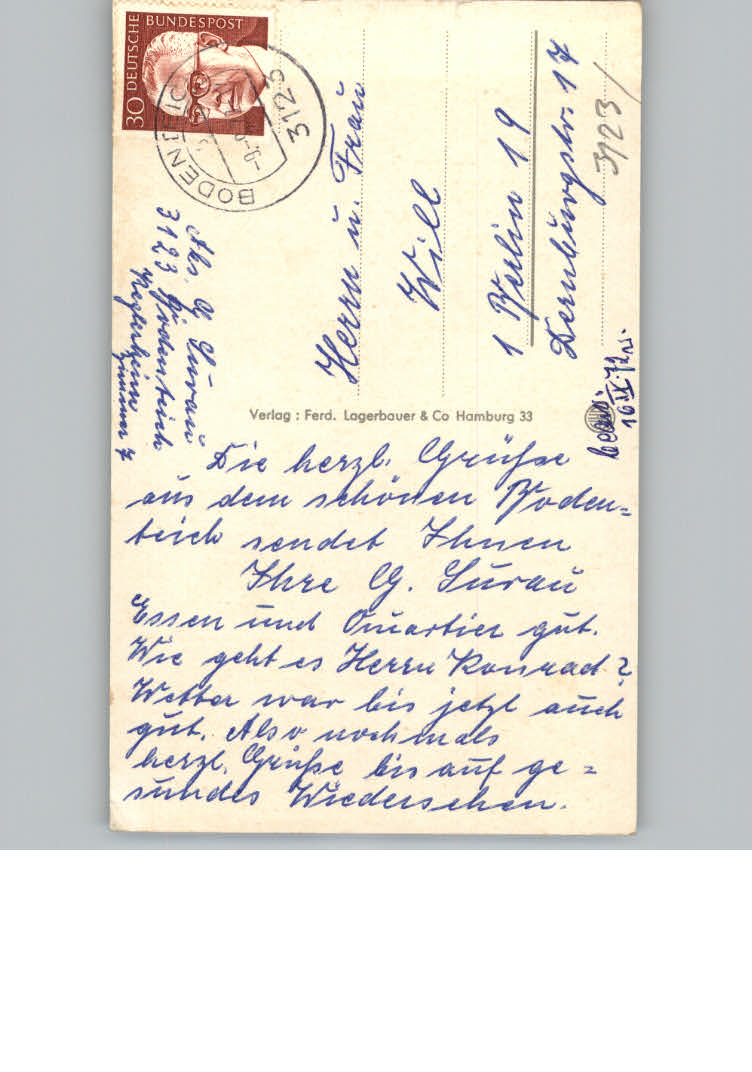 DEUTSCHE BUNDESPOST
30
3123
BODENTEICH
Abs. G. Surau
3123 Bodenteich
Zimmer 7
Herrn u. Frau
Will
1 Berlin 19
Dernburgstr. 17
3123/
16.IX.72
Verlag : Ferd. Lagerbauer & Co Hamburg 33
Die herzl. Grüße
aus dem schönen Boden=
teich sendet Ihnen
Ihre G. Surau
Essen und Quartier gut.
Wie geht es Herrn Konrad?
Wetter war bis jetzt auch
gut. Also nochmals
herzl. Grüße bis auf ge=
sundes Wiedersehen.